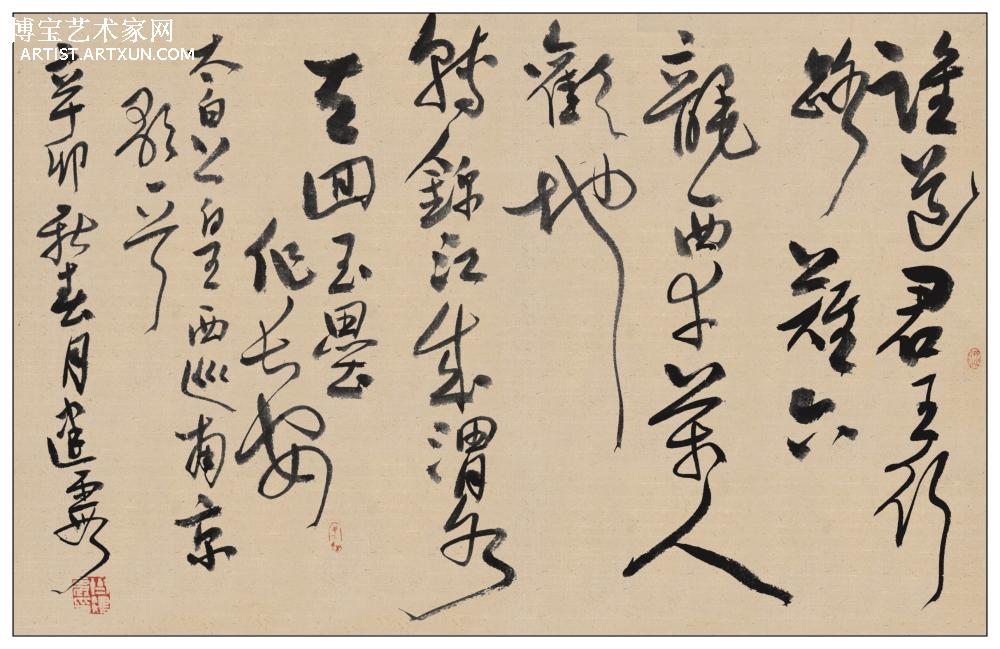 博宝艺术家网
ARTIST.ARTXUN.COM
誰道君王行
路難六
龍西幸萬人
歡地
轉錦江成渭水
天回玉壘
作長安
太白上皇西巡南京
歌一首
辛卯秋春月建霞